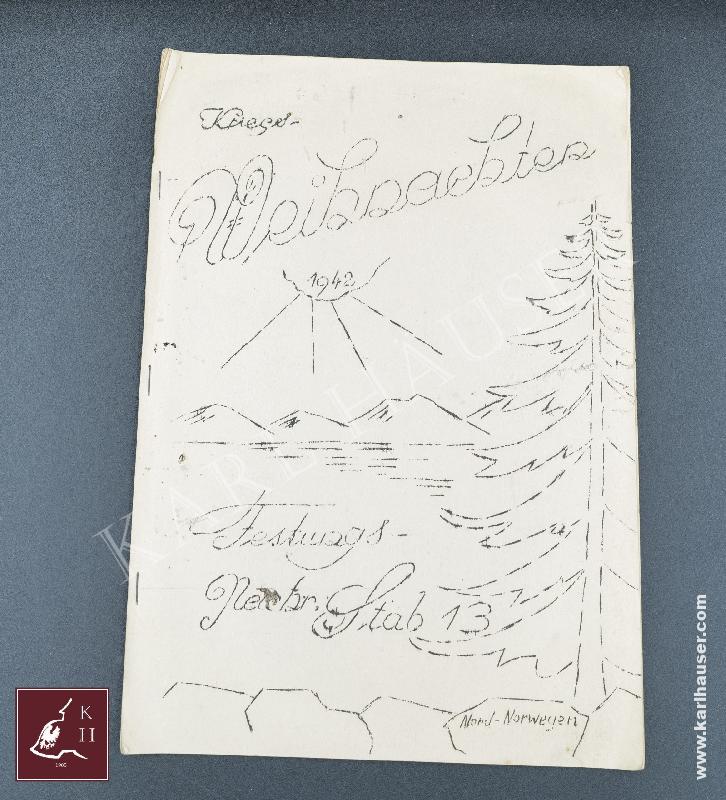 Kriegs-
Weihnachten
1942
Festungs-
Nachr. Stab 13
Nord-Norwegen
KARL HAUSER
K
H
1965
www.karlhauser.com